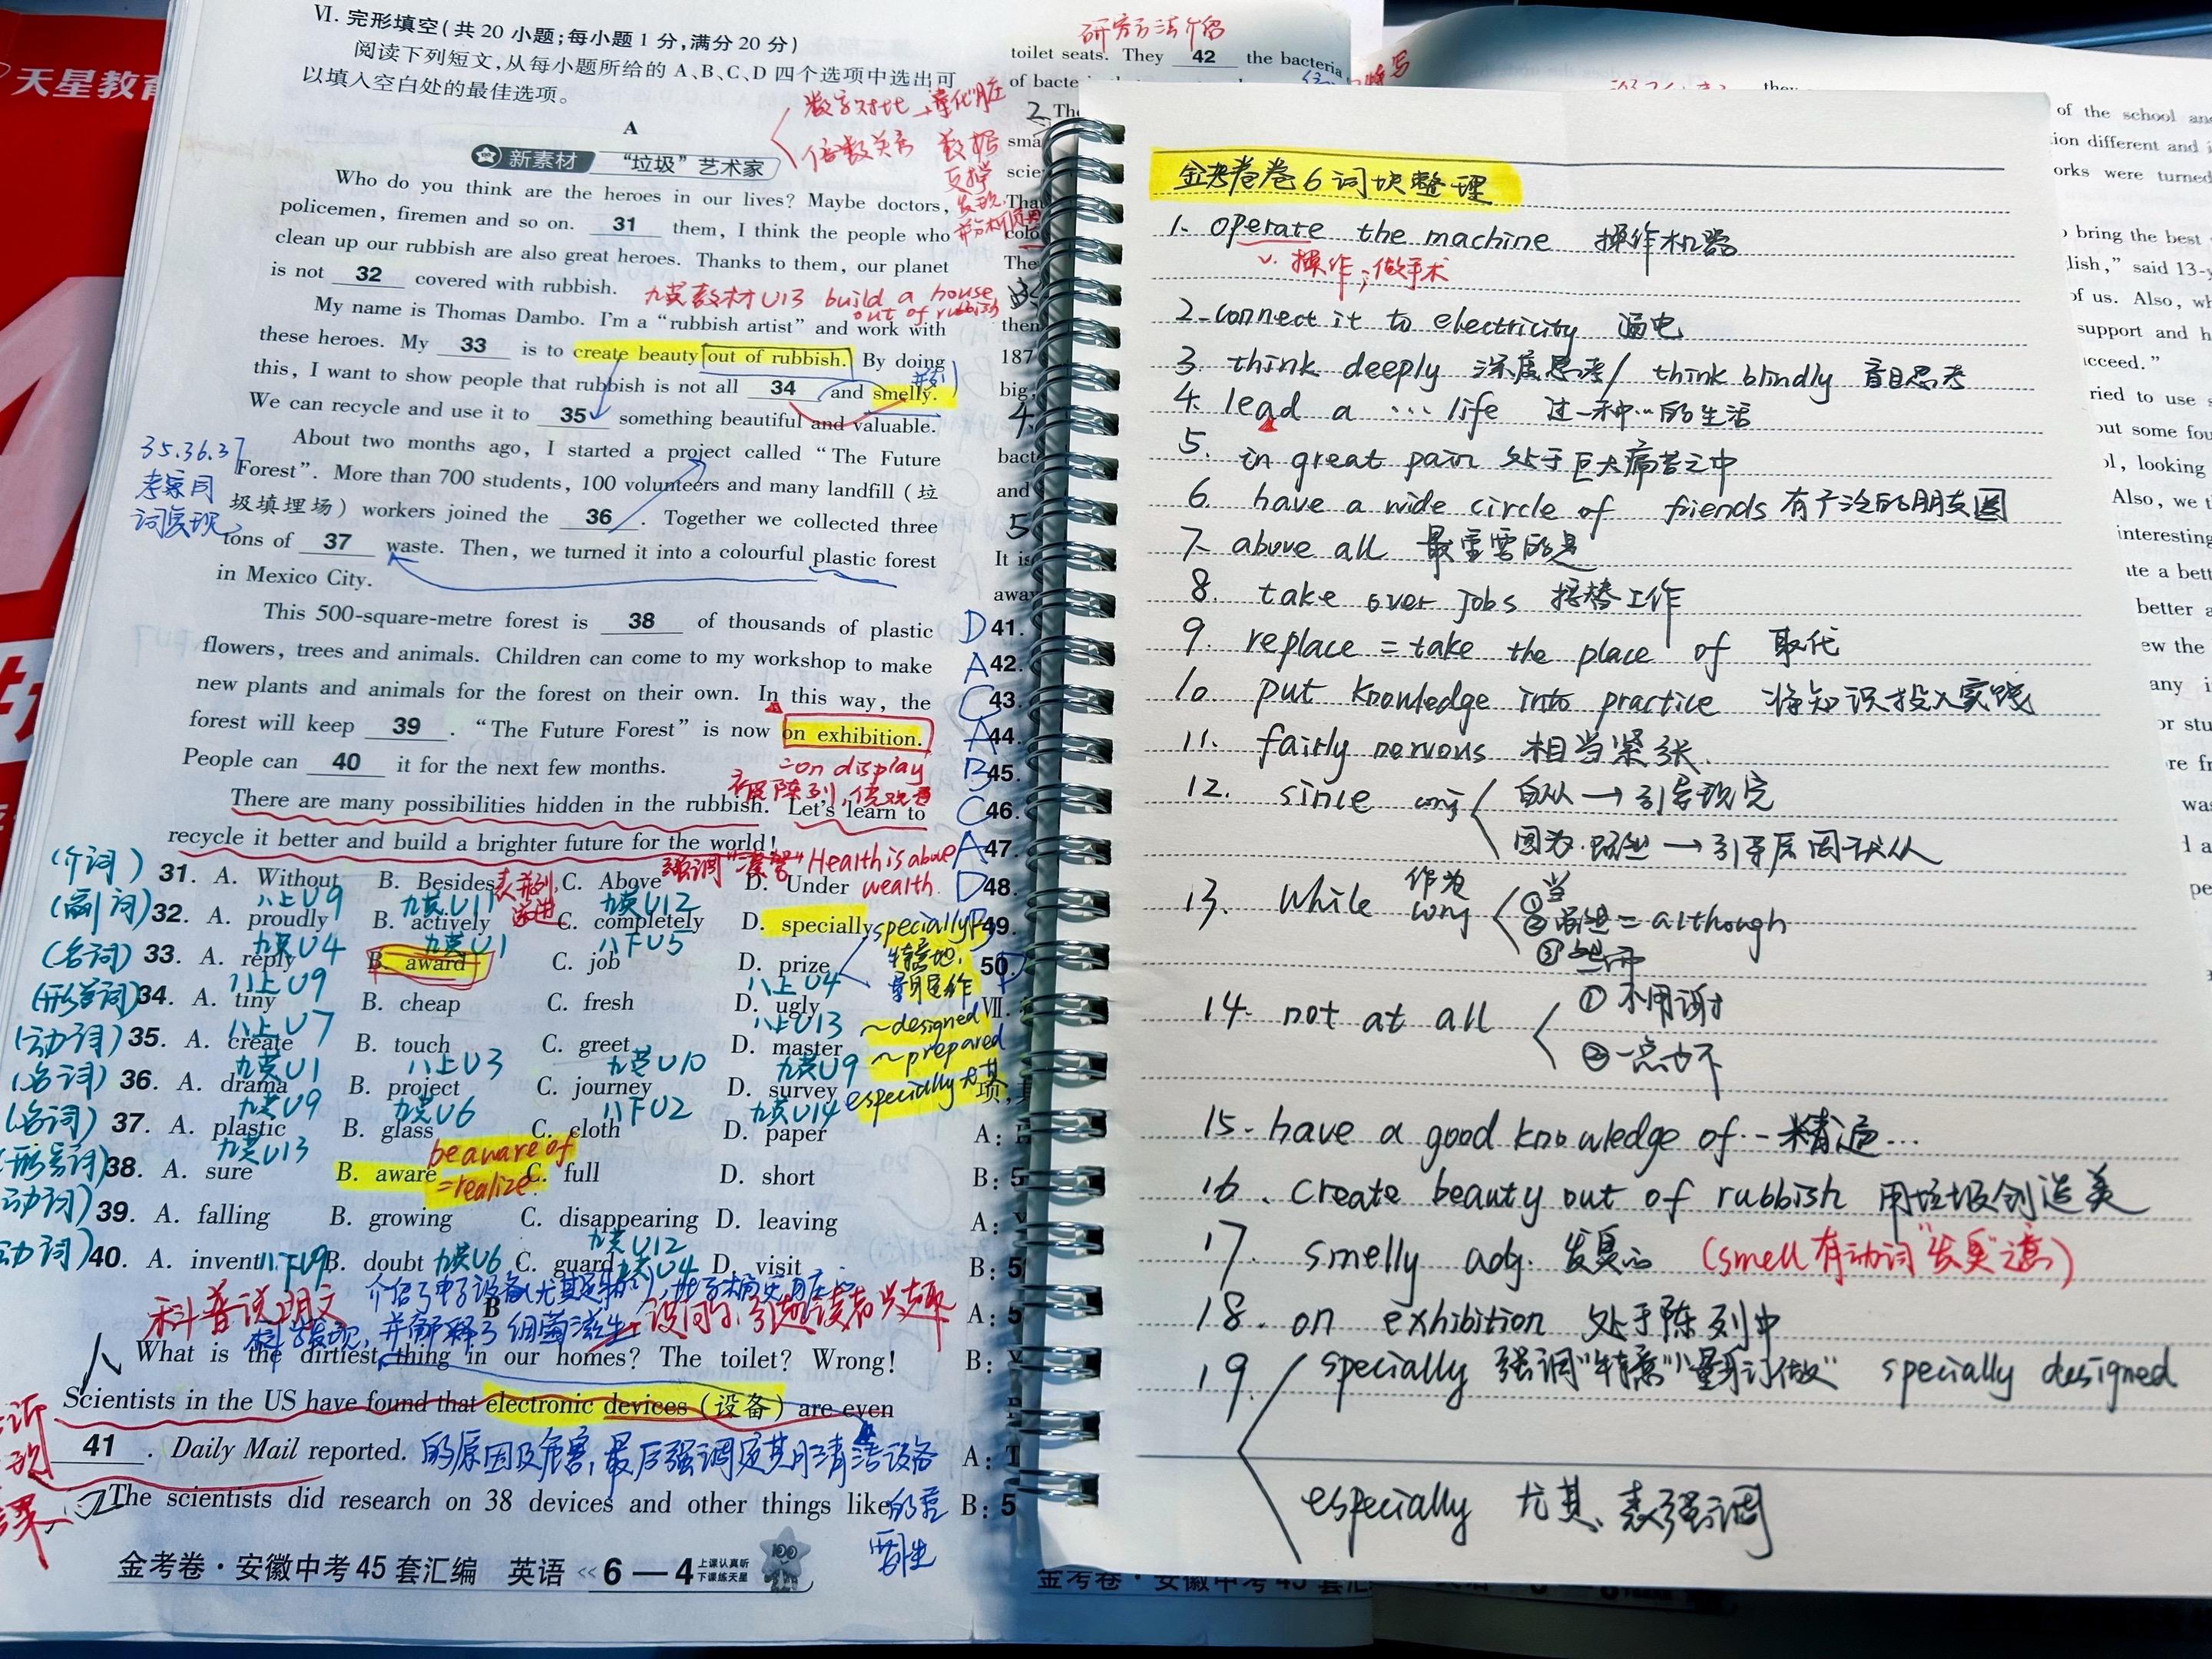 天星教育
VI. 完形填空(共 20 小题;每小题 1 分,满分 20 分)
阅读下列短文,从每小题所给的 A、B、C、D 四个选项中选出可
以填入空白处的最佳选项。
数字对比
倍数关系 数据
支撑
A
新素材 “垃圾”艺术家
Who do you think are the heroes in our lives? Maybe doctors,
policemen, firemen and so on. 31 them, I think the people who
clean up our rubbish are also great heroes. Thanks to them, our planet
is not 32 covered with rubbish.
九英教材U13 build a house
out of rubbish
My name is Thomas Dambo. I'm a “rubbish artist” and work with
these heroes. My 33 is to create beauty out of rubbish. By doing
this, I want to show people that rubbish is not all 34 and smelly.
并列
We can recycle and use it to 35 something beautiful and valuable.
35.36.37
考察同
词复现
About two months ago, I started a project called “The Future
Forest”. More than 700 students, 100 volunteers and many landfill (垃
圾填埋场) workers joined the 36 . Together we collected three
tons of 37 waste. Then, we turned it into a colourful plastic forest
in Mexico City.
This 500-square-metre forest is 38 of thousands of plastic
flowers, trees and animals. Children can come to my workshop to make
new plants and animals for the forest on their own. In this way, the
forest will keep 39 . “The Future Forest” is now on exhibition.
People can 40 it for the next few months.
=on display
There are many possibilities hidden in the rubbish. Let's learn to
recycle it better and build a brighter future for the world!
Health is above
wealth
(介词) 31. A. Without B. Besides C. Above D. Under
八上U9 九英U11 九英U12
(副词) 32. A. proudly B. actively C. completely D. specially
九英U4 九英U1 八下U5
(名词) 33. A. reply B. award C. job D. prize
八上U9 八上U4
(形容词) 34. A. tiny B. cheap C. fresh D. ugly
八上U7 八上U13
(动词) 35. A. create B. touch C. greet D. master
九英U1 八上U3 九英U10 九英U9
(名词) 36. A. drama B. project C. journey D. survey
九英U9 九英U6 八下U2 九英U14
(名词) 37. A. plastic B. glass C. cloth D. paper
九英U13
(形容词) 38. A. sure B. aware C. full D. short
be aware of
=realize
(动词) 39. A. falling B. growing C. disappearing D. leaving
九英U12
(动词) 40. A. invent 八下U9 B. doubt 九英U6 C. guard 九英U4 D. visit
specially
特意地,
~designed
~prepared
especially 尤其
科普说明文
设问句,引起读者兴趣
B
What is the dirtiest thing in our homes? The toilet? Wrong!
Scientists in the US have found that electronic devices (设备) are even
41 . Daily Mail reported.
的原因及危害,最后强调定期清洁设备
The scientists did research on 38 devices and other things like
的重
要性
金考卷·安徽中考 45 套汇编 英语 «6—4 上课认真听
下课练天星
研究方法介绍
toilet seats. They 42 the bacteria
of bacte
2
sma
scie
The
then
187
big,
4.
bact
and
5
It is
away
D 41.
A 42.
C 43.
A 44.
B 45.
C 46.
A 47.
D 48.
49.
50.
VII.
A:
B: 5
A:
B: 5
A: 5
B:
A: T
B: 5
金考卷卷6词块整理
1. operate the machine 操作机器
v. 操作;做手术
2. connect it to electricity 通电
3. think deeply 深度思考/ think blindly 盲目思考
4. lead a … life 过一种…的生活
5. in great pain 处于巨大痛苦之中
6. have a wide circle of friends 有广泛的朋友圈
7. above all 最重要的是
8. take over jobs 接替工作
9. replace = take the place of 取代
10. put knowledge into practice 将知识投入实践
11. fairly nervous 相当紧张.
12. since conj 自从 → 引导现完
因为.既然 → 引导原因状从
13. While 作为 conj ①当
②虽然 = although
③然而
14. not at all ① 不用谢
② 一点也不
15. have a good knowledge of … 精通…
16. create beauty out of rubbish 用垃圾创造美
17. smelly adj. 发臭的 (smell 有动词“发臭”之意)
18. on exhibition 处于陈列中
19. specially 强调“特意”“量身订做” specially designed
especially 尤其、表强调
of the school and
ion different and i
orks were turned
bring the best
lish,” said 13-y
of us. Also, wh
support and h
ucceed.”
ried to use
out some fou
ol, looking
Also, we t
interesting
ate a bett
better a
ew the
any i
or stu
re fr
was